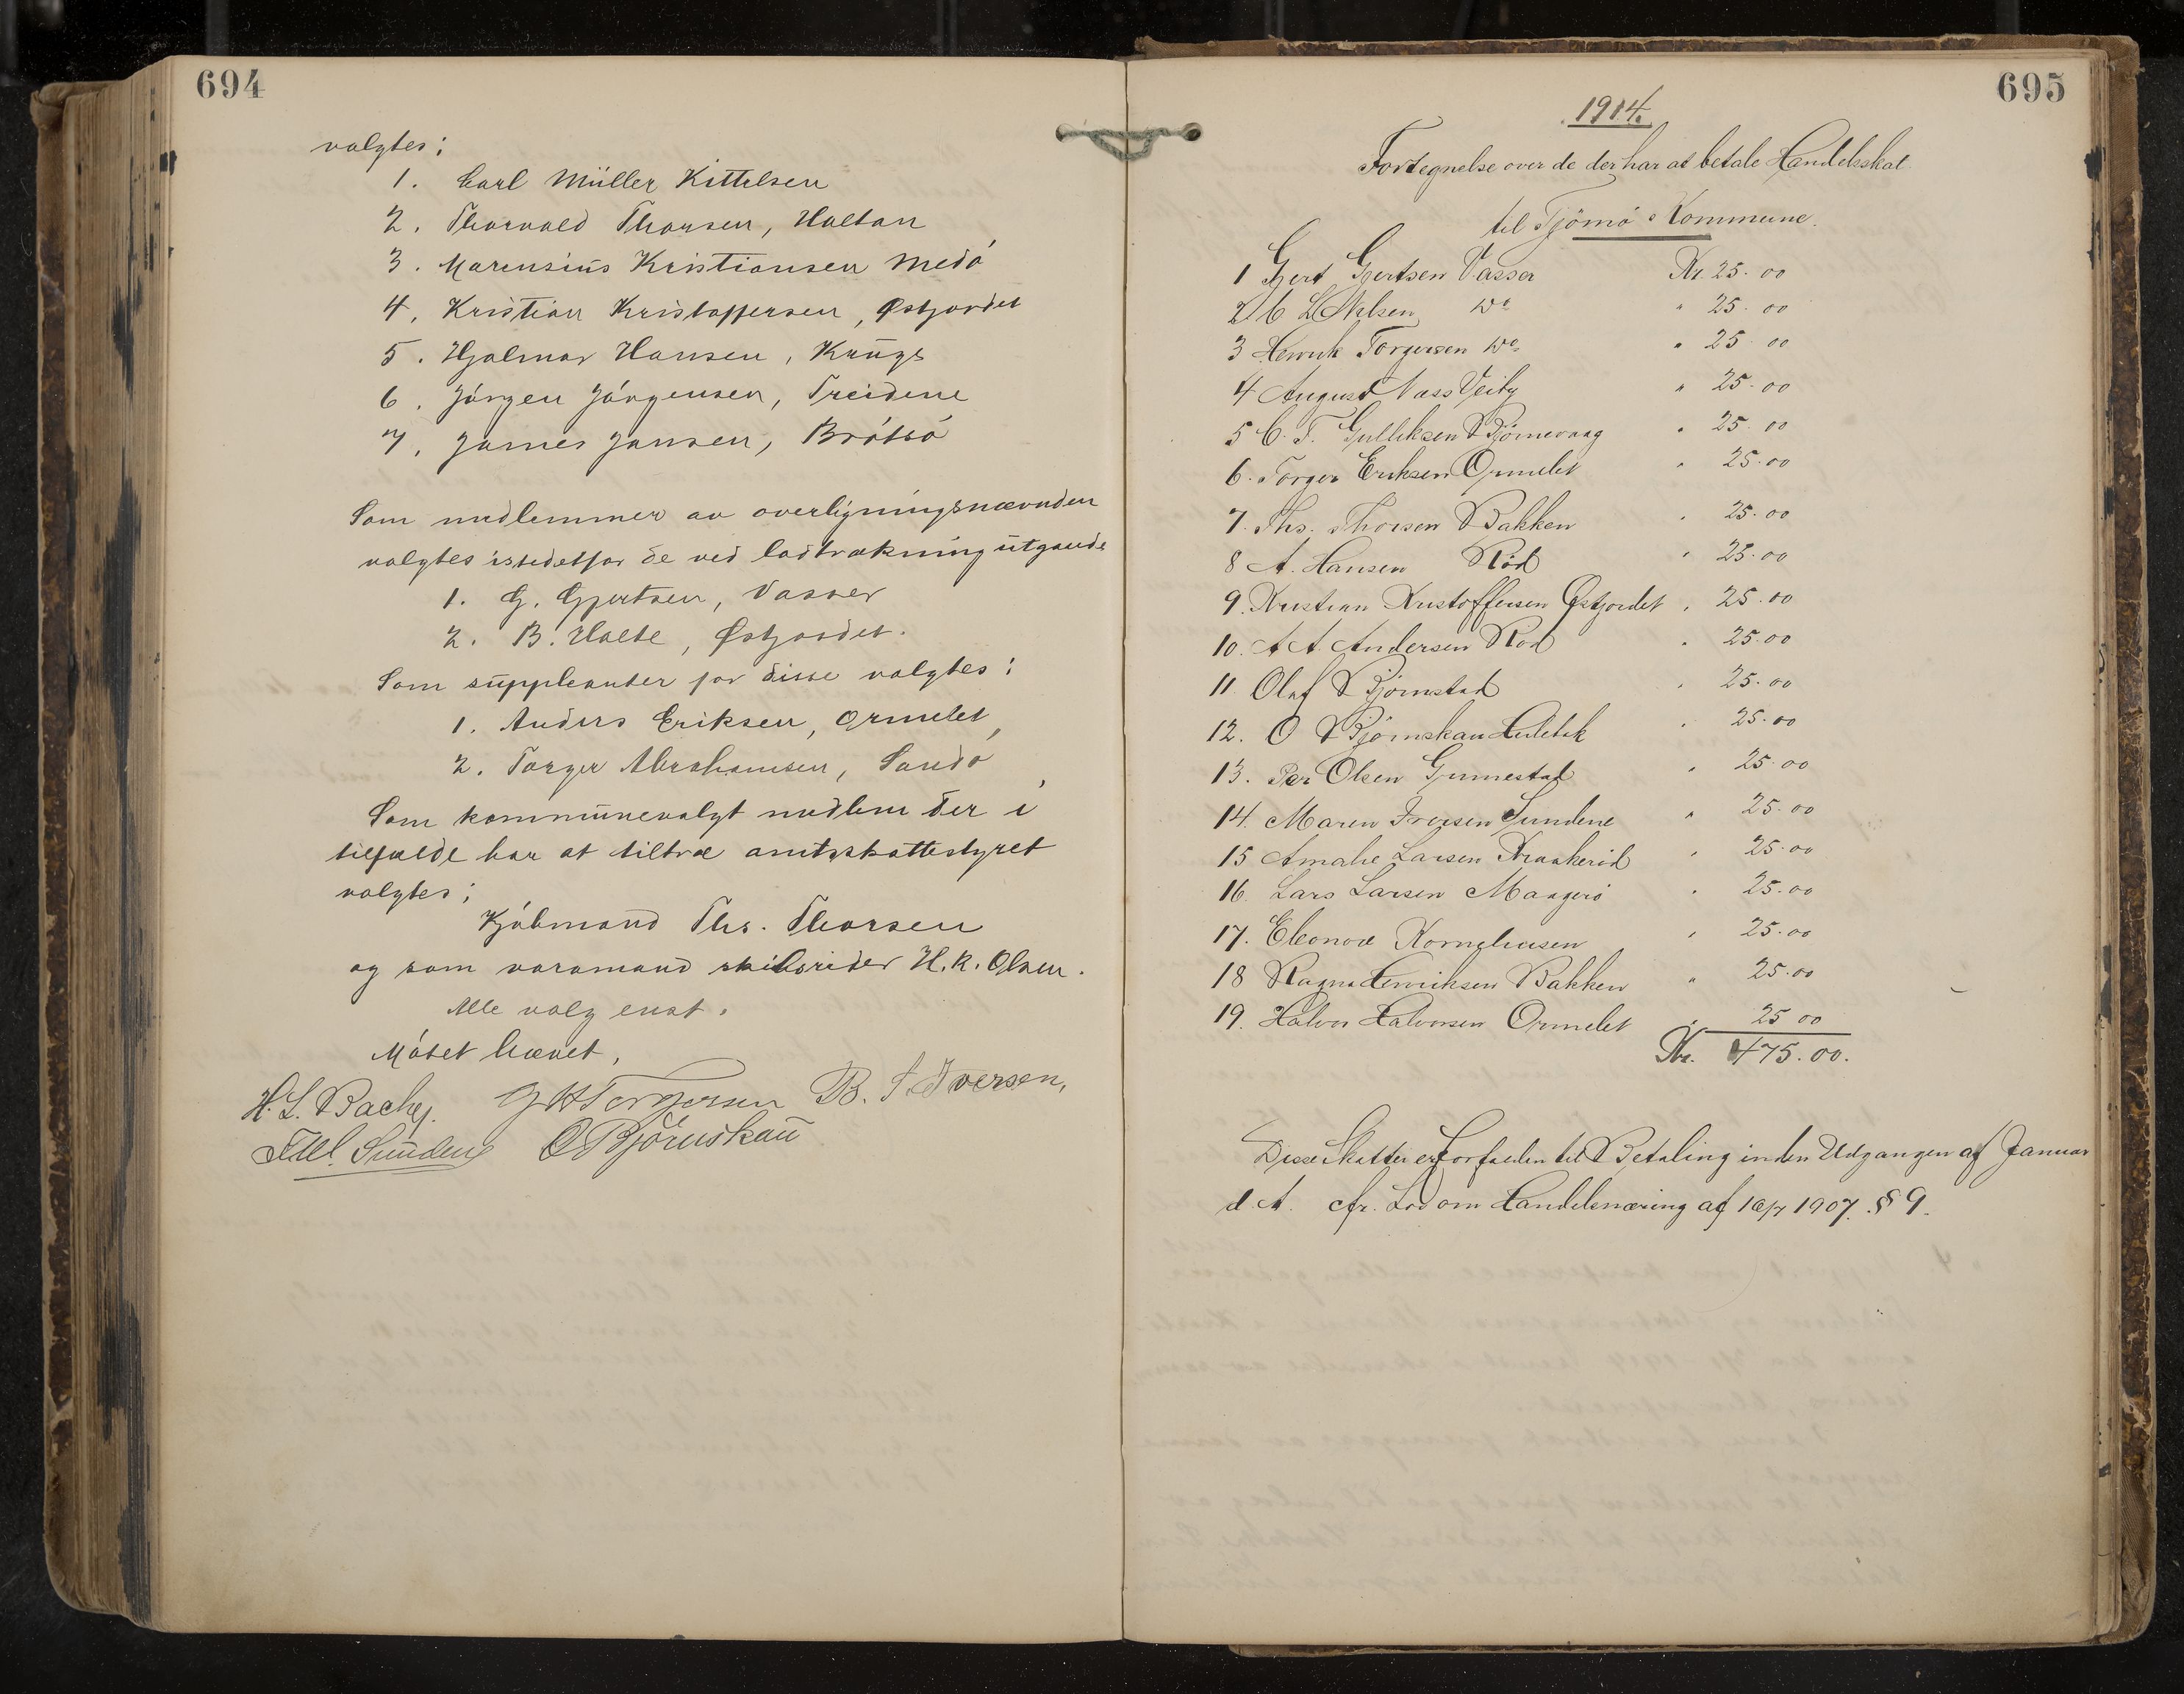 694
valgtes:
1. Carl Müller Kittelsen
2. Thorvald Thorsen, Holtan
3. Marensius Kristiansen Medö
4. Kristian Kristoffersen, Østjordet
5. Hjalmar Hansen, Krüge
6. Jörgen Jörgensen, Treidene
7. James Jansen, Brötsö
Som medlemmer av overligningsnævnden
valgtes istedetfor de ved lodtrækning utgaaede
1. G. Gjertsen, Vasser
2. B. Holte, Østjordet.
Som suppleanter for disse valgtes:
1. Anders Eriksen, Ormelet,
2. Torger Abrahamsen, Sandö
Som kommunevalgt medlem der i
tilfælde har at tiltræ amtsskattestyret
valgtes;
Kjöbmand Ths. Thorsen
og som varamand skibsrider H. K. Olsen.
Alle valg enst.
Mötet hævet,
H. L. Bache. G H Torgersen B. Iversen,
Sundene O Björnskau
695
1914.
Fortegnelse over de der har at betale Handelsskat
til Tjömö Kommune.
1 Gjert Gjertsen Vasser Kr. 25.00
2 C L Nilsen Do " 25.00
3 Henrik Torgersen Do " 25.00
4 August Nass Veiby " 25.00
5 C. T. Gulliksen Bjömevaag " 25.00
6. Torger Eriksen Ormelet " 25.00
7. Ths. Thorsen Bakken " 25.00
8 A. Hansen Röd " 25.00
9. Kristian Kristoffersen Østjordet " 25.00
10. A A Andersen Röd " 25.00
11. Olaf Björnstad " 25.00
12. O Björnskau Hulebak " 25.00
13. Per Olsen Grimestad " 25.00
14. Maren Iversen Sundene " 25.00
15 Amalie Larsen Kraakeröd " 25.00
16. Lars Larsen Maagerö " 25.00
17. Eleonore Korneliusen " 25.00
18 Ragna Henriksen Bakken " 25.00
19. Halvor Halvorsen Ormelet " 25 00
Kr. 475.00.
Disse Skatter er forfalden til Betaling inden Udgangen af Januar
d. A. cfr. Lov om Handelsnæring af 1907. § 9.